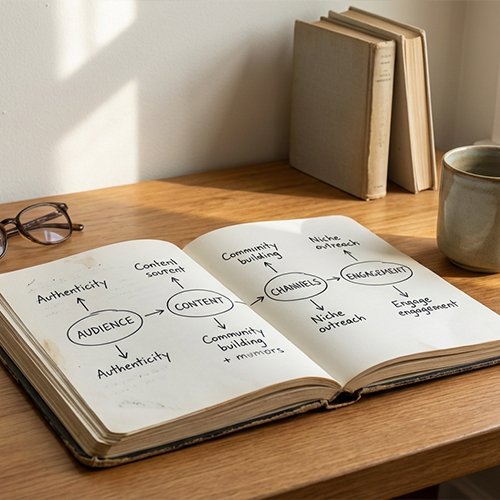 Authenticity
AUDIENCE
Authenticity
Content
sourent
CONTENT
Community
building
+ mumors
Community
building
CHANNELS
Niche
outreach
Niche
outreach
ENGAGEMENT
Engage
engagement